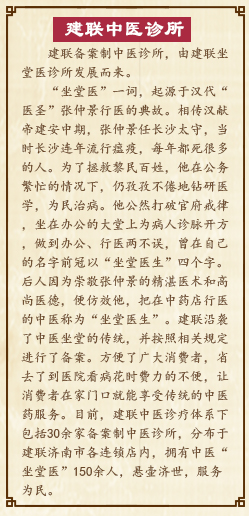 建联中医诊所
建联备案制中医诊所，由建联坐
堂医诊所发展而来。
“坐堂医”一词，起源于汉代“
医圣”张仲景行医的典故。相传汉献
帝建安中期，张仲景任长沙太守，当
时长沙连年流行瘟疫，每年都死很多
的人。为了拯救黎民百姓，他在公务
繁忙的情况下，仍孜孜不倦地钻研医
学，为民治病。他公然打破官府戒律
，坐在办公的大堂上为病人诊脉开方
，做到办公、行医两不误，曾在自己
的名字前冠以“坐堂医生”四个字。
后人因为崇敬张仲景的精湛医术和高
尚医德，便仿效他，把在中药店行医
的中医称为“坐堂医生”。建联沿袭
了中医坐堂的传统，并按照相关规定
进行了备案。方便了广大消费者，省
去了到医院看病花时费力的不便，让
消费者在家门口就能享受传统的中医
药服务。目前，建联中医诊疗体系下
包括30余家备案制中医诊所，分布于
建联济南市各连锁店内，拥有中医“
坐堂医”150余人，悬壶济世，服务
为民。